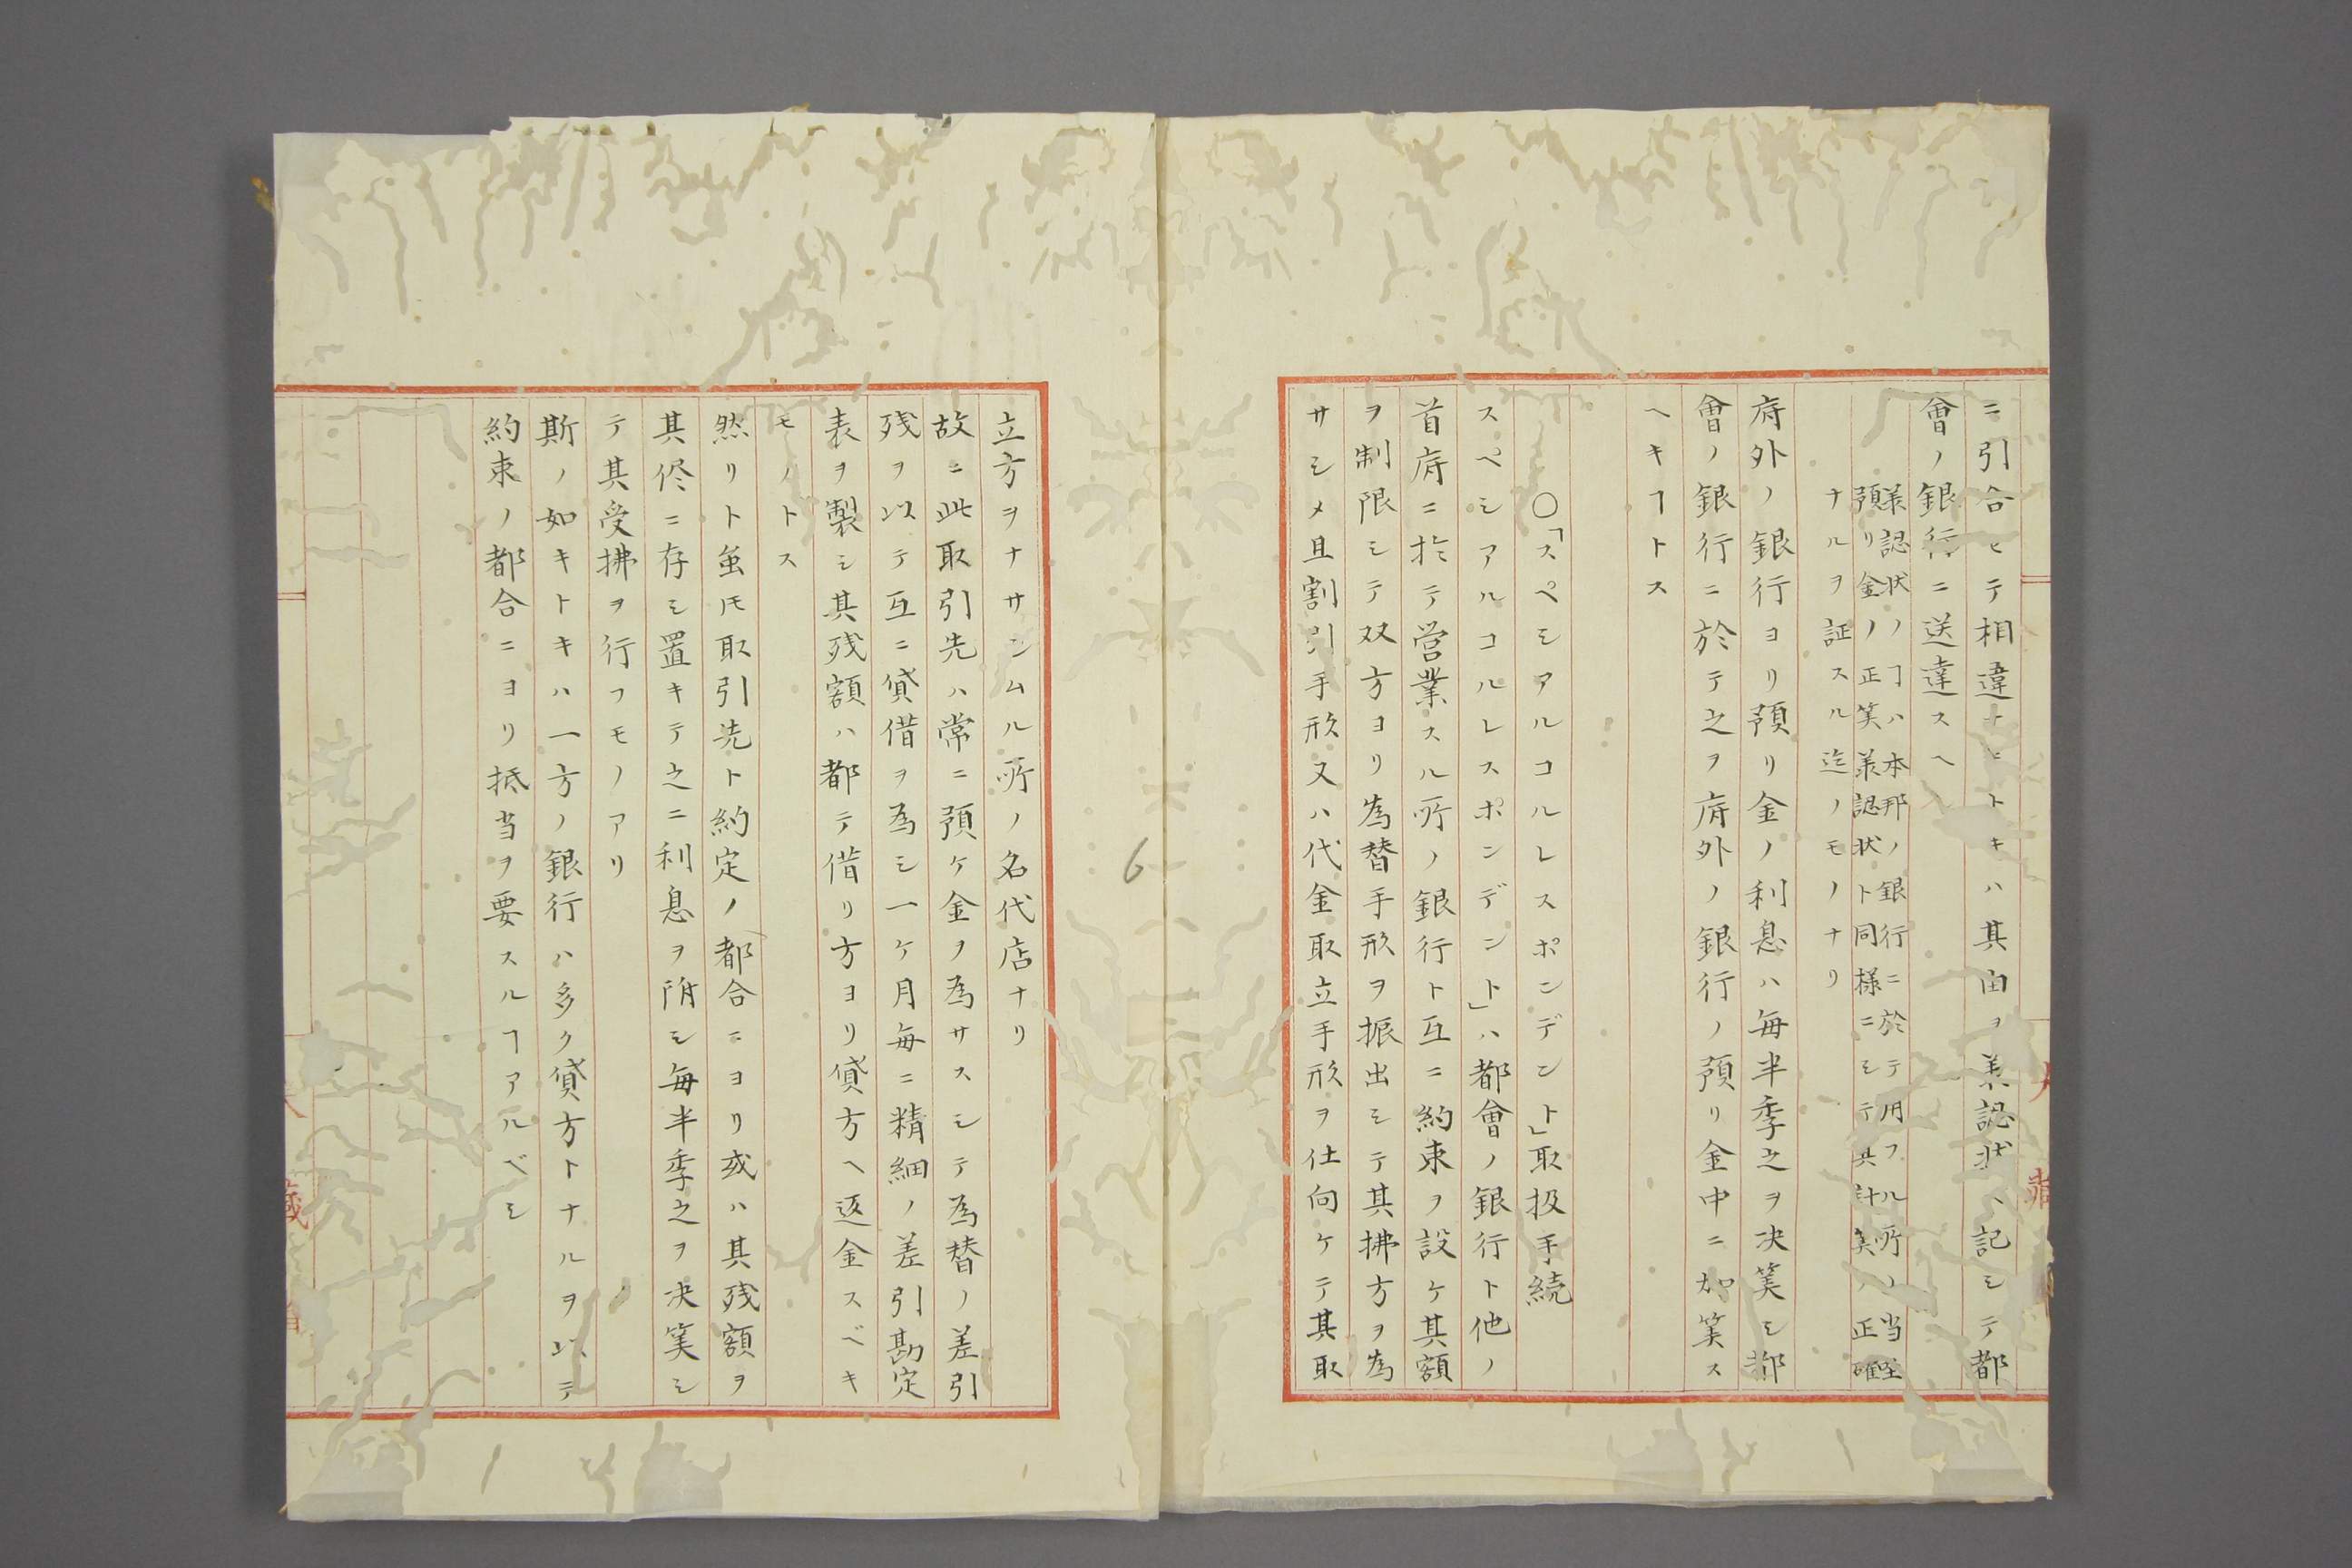 ニ引合セテ相違ナキトキハ其由ヲ承認状ヘ記シテ都
會ノ銀行ニ送達スヘ
承認状ノヿハ本邦ノ銀行ニ於テ用フル所ノ当坐
預リ金ノ正筭承認状ト同様ニシテ其計筭ノ正確
ナルヲ証スル迄ノモノナリ
府外ノ銀行ヨリ預リ金ノ利息ハ毎半季之ヲ决筭シ都
會ノ銀行ニ於テ之ヲ府外ノ銀行ノ預リ金中ニ加筭ス
ヘキヿトス
○「スペシアルコルレスポンデント」取扱手続
スペシアルコルレスポンデント」ハ都會ノ銀行ト他ノ
首府ニ於テ営業スル所ノ銀行ト互ニ約束ヲ設ケ其額
ヲ制限シテ双方ヨリ為替手形ヲ振出シテ其拂方ヲ為
サシメ且割引手形又ハ代金取立手形ヲ仕向ケテ其取
6
立方ヲナサシムル所ノ名代店ナリ
故ニ此取引先ハ常ニ預ケ金ヲ為サスシテ為替ノ差引
残ヲ以テ互ニ貸借ヲ為シ一ヶ月毎ニ精細ノ差引勘定
表ヲ製シ其残額ハ都テ借リ方ヨリ貸方ヘ返金スベキ
モノトス
然リト虽𪜈取引先ト約定ノ都合ニヨリ或ハ其残額ヲ
其侭ニ存シ置キテ之ニ利息ヲ附シ毎半季之ヲ决筭シ
テ其受拂ヲ行フモノアリ
斯ノ如キトキハ一方ノ銀行ハ多ク貸方トナルヲ以テ
約束ノ都合ニヨリ抵当ヲ要スルヿアルベシ